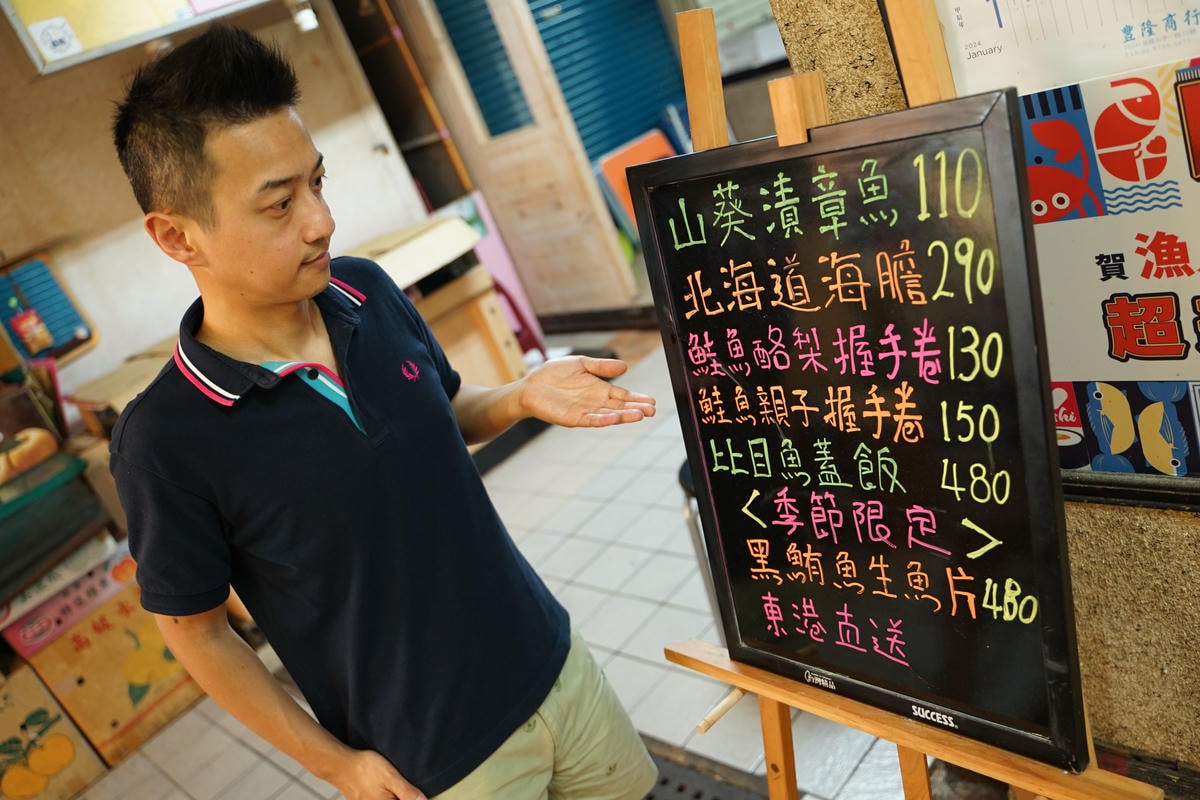 山葵漬章魚 110
北海道海膽 290
鮭魚酪梨握手卷 130
鮭魚親子握手卷 150
比目魚蓋飯 480
<季節限定>
黑鮪魚生魚片 480
東港直送
SUCCESS
2024
January
豐隆商行
賀 漁
超